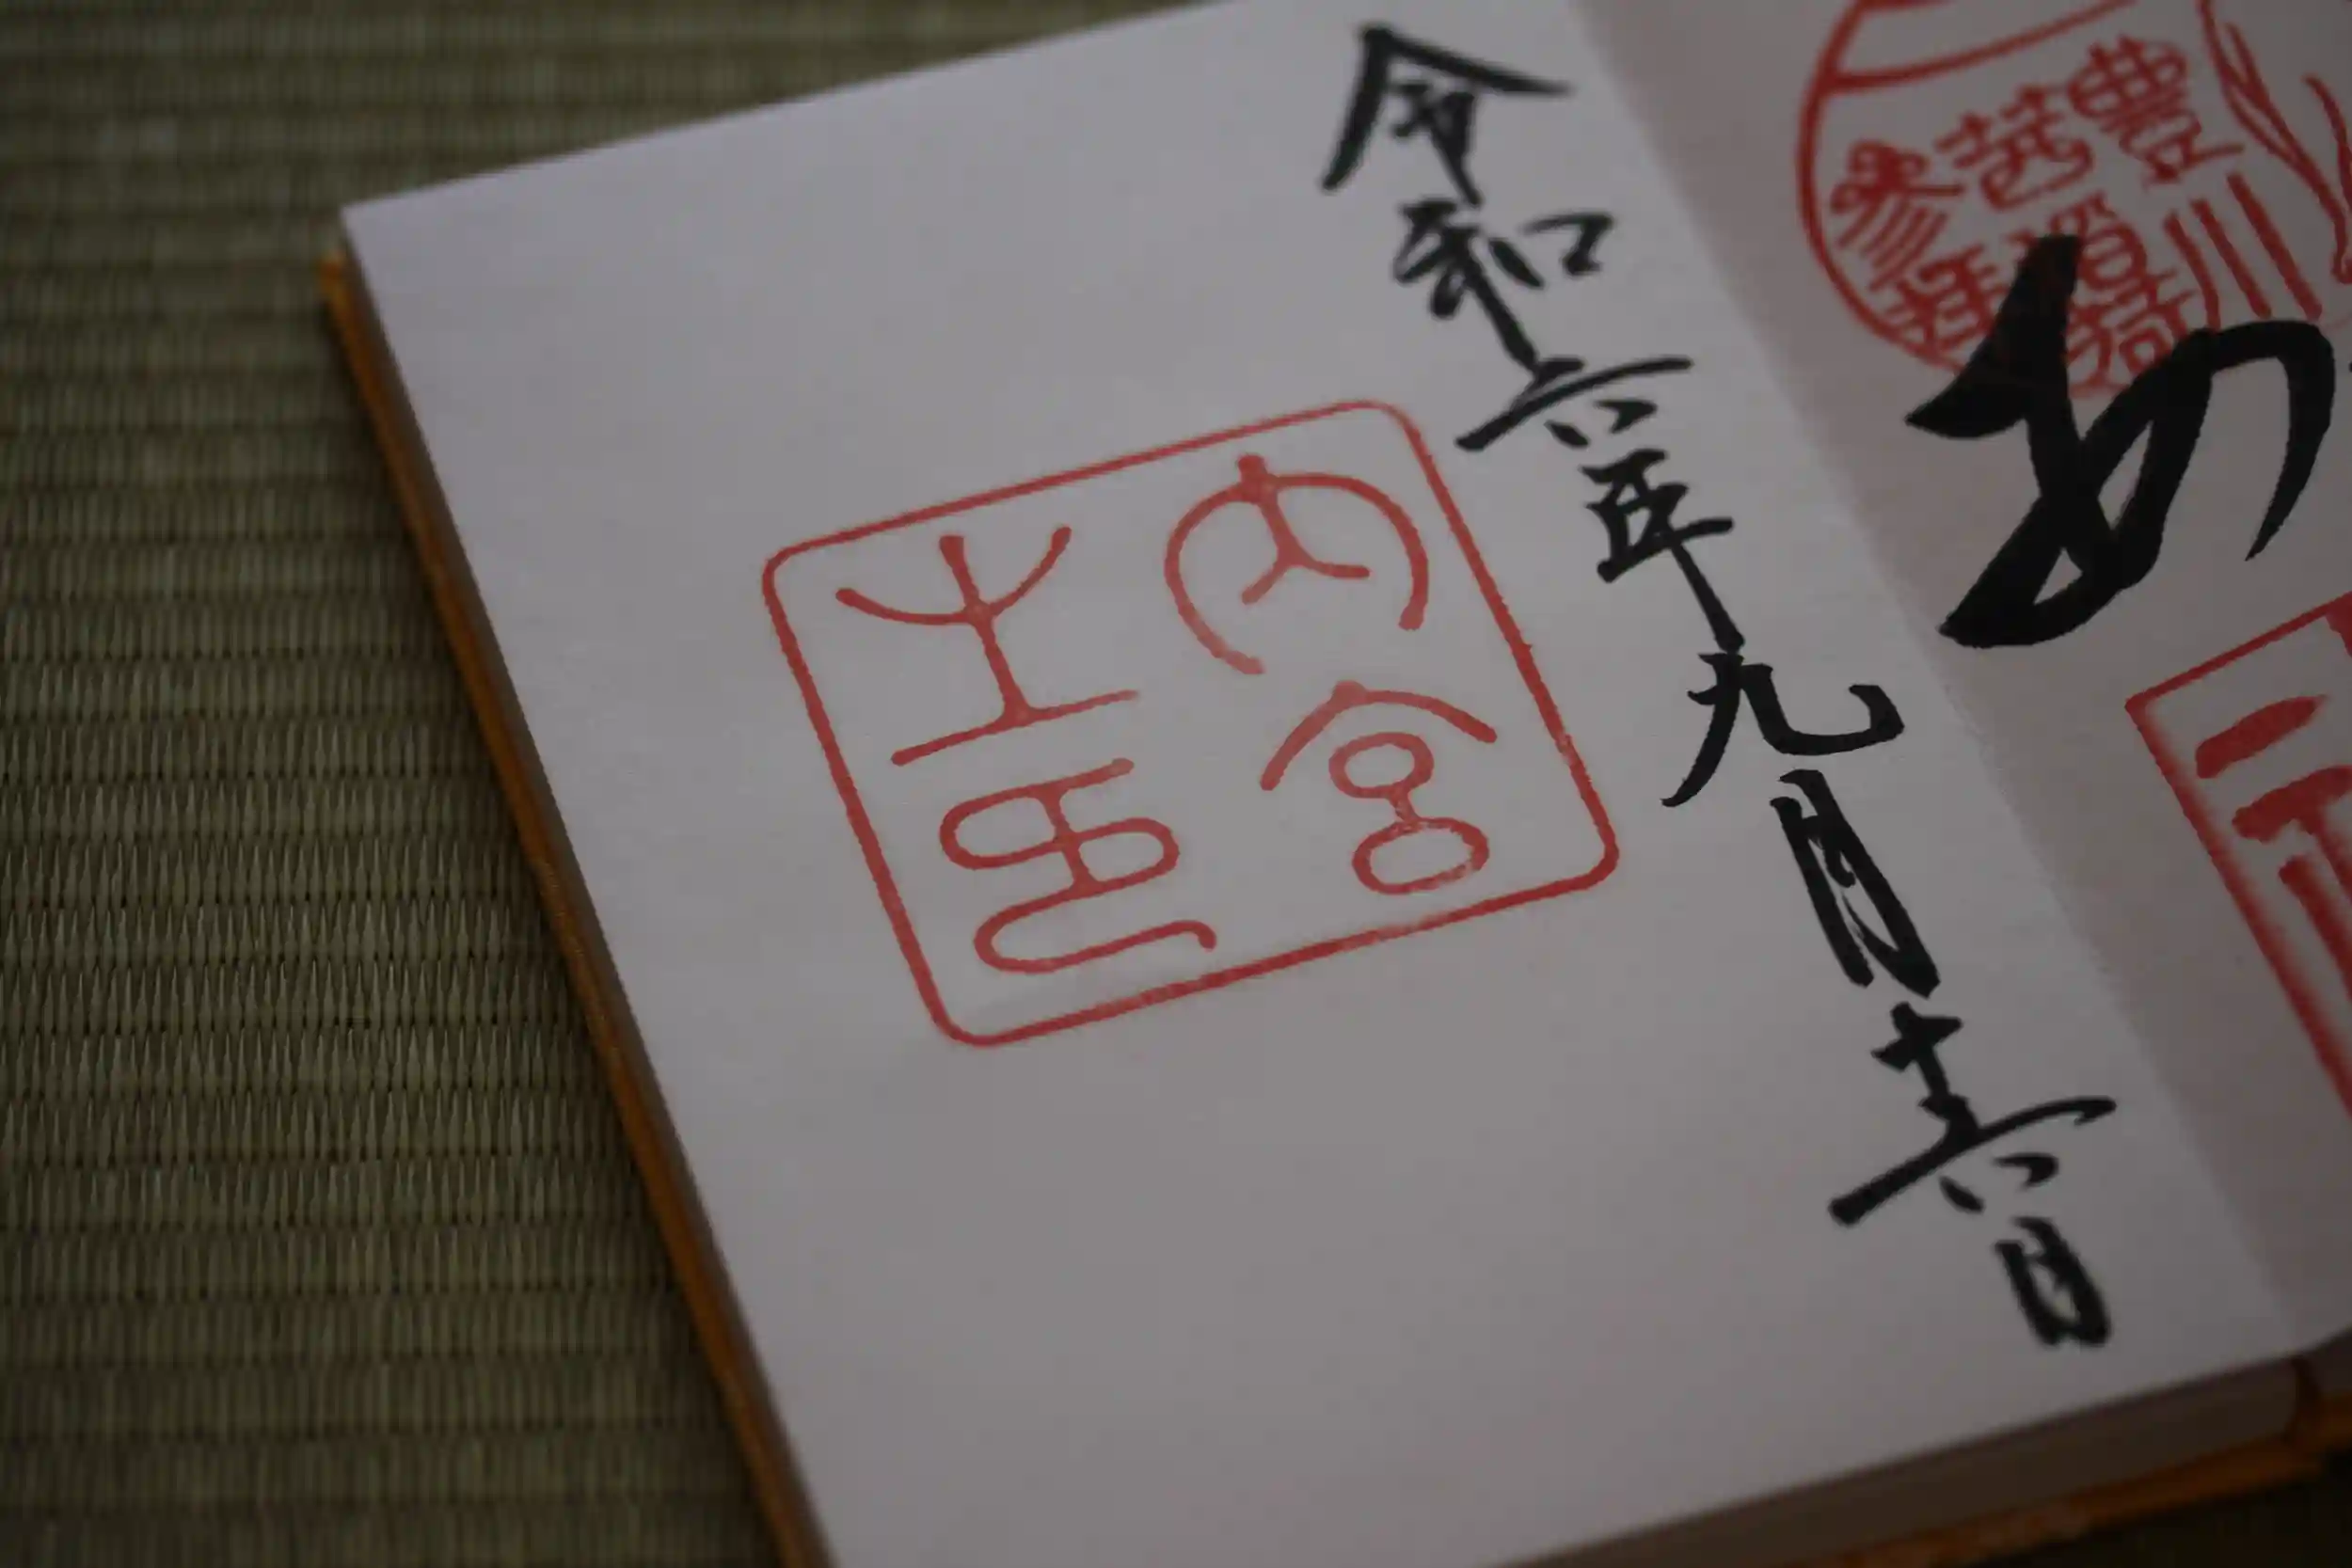 豊川
参拝
令和六年九月十六日
内宮
之印